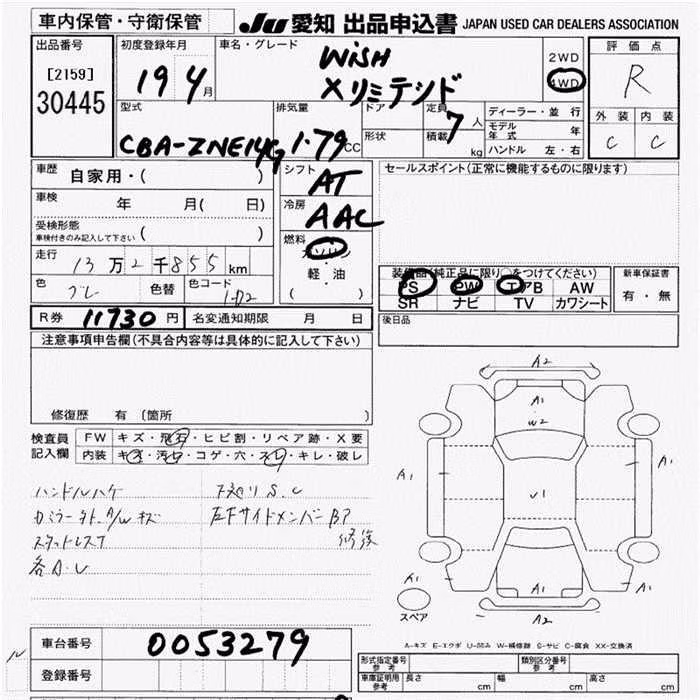 車内保管・守衛保管
JU 愛知 出品申込書 JAPAN USED CAR DEALERS ASSOCIATION
出品番号
[2159]
30445
初度登録年月
19 4月
車名・グレード
WiSH
Xリミテシド
2WD
4WD
評価点
R
外装 内装
C C
型式
CBA-ZNE14G
排気量
1.79 CC
ドア
形状
定員
7人
積載 kg
ディーラー・並行
モデル年式 年
ハンドル 左・右
車歴
自家用・( )
車検
年 月( 日)
受検形態
車検付きのみ記入して下さい ( )
走行
13万2千855km
色
グレ
色替
色コード
1D2
シフト
AT
冷房
AAC
燃料
ガソリン
軽・油
( )
セールスポイント(正常に機能するものに限ります)
装備品(純正品に限り○をつけてください)
PS PW エアB AW
SR ナビ TV カワシート
新車保証書
有・無
後日品
R券 11730円 名変通知期限 月 日
注意事項申告欄(不具合内容等は具体的に記入して下さい)
修復歴 有 (箇所
検査員記入欄
FW キズ・飛石・ヒビ割・リペア跡・X要
内装 キズ・汚レ・コゲ・穴・スレ・キレ・破レ
ハンドルハゲ
下廻リ S.C
カミラータト. A/W キズ
左Fサイドメンバー BP
スタットレスT
修後
各A.U
A2
A1
W2
A1
A1
U1
A1
A1
A1
A2
スペア
A-キズ E-エクボ U-凹み W-補修跡 S-サビ C-腐食 XX-交換済
車台番号
0053279
登録番号
形式指定番号
参考
類別区分番号
参考
車庫証明用
参考
長さ cm
幅 cm
高さ cm